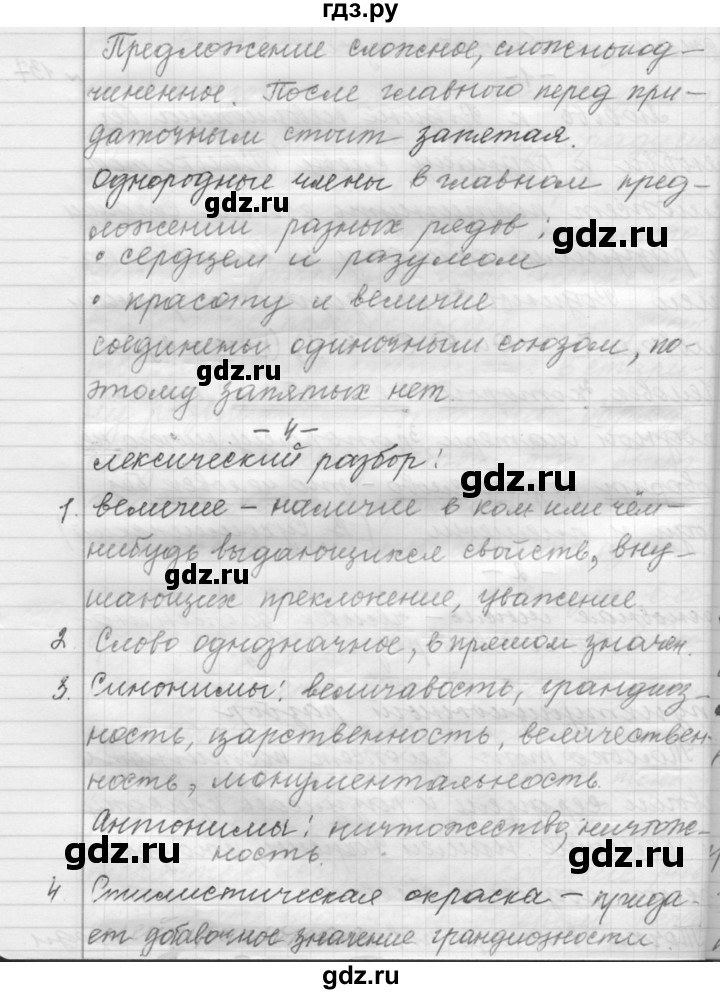 гдз.ру
Предложение сложное, сложнопод-
чиненное. После главного перед при-
даточным стоит запятая.
Однородные члены в главном пред-
gdz.ru
ложении разных рядов:
gdz.ru
• сердцем и разумом
• красоту и величие
соединены одиночным союзом, по-
gdz.ru
этому запятых нет.
- 4 -
лексический разбор:
gdz.ru
1. величие - наличие в ком или чём-
нибудь выдающихся свойств, вну-
gdz.ru
шающих преклонение, уважение
2. Слово однозначное, в прямом значен.
3. Синонимы: величавость, грандиоз-
gdz.ru
ность, царственность, величествен-
ность, монументальность.
Антонимы: ничтожество, ничтож-
gdz.ru
ность.
gdz.ru
4. Стилистическая окраска - прида-
gdz.ru
ет добавочное значение грандиозности.
gdz.ru